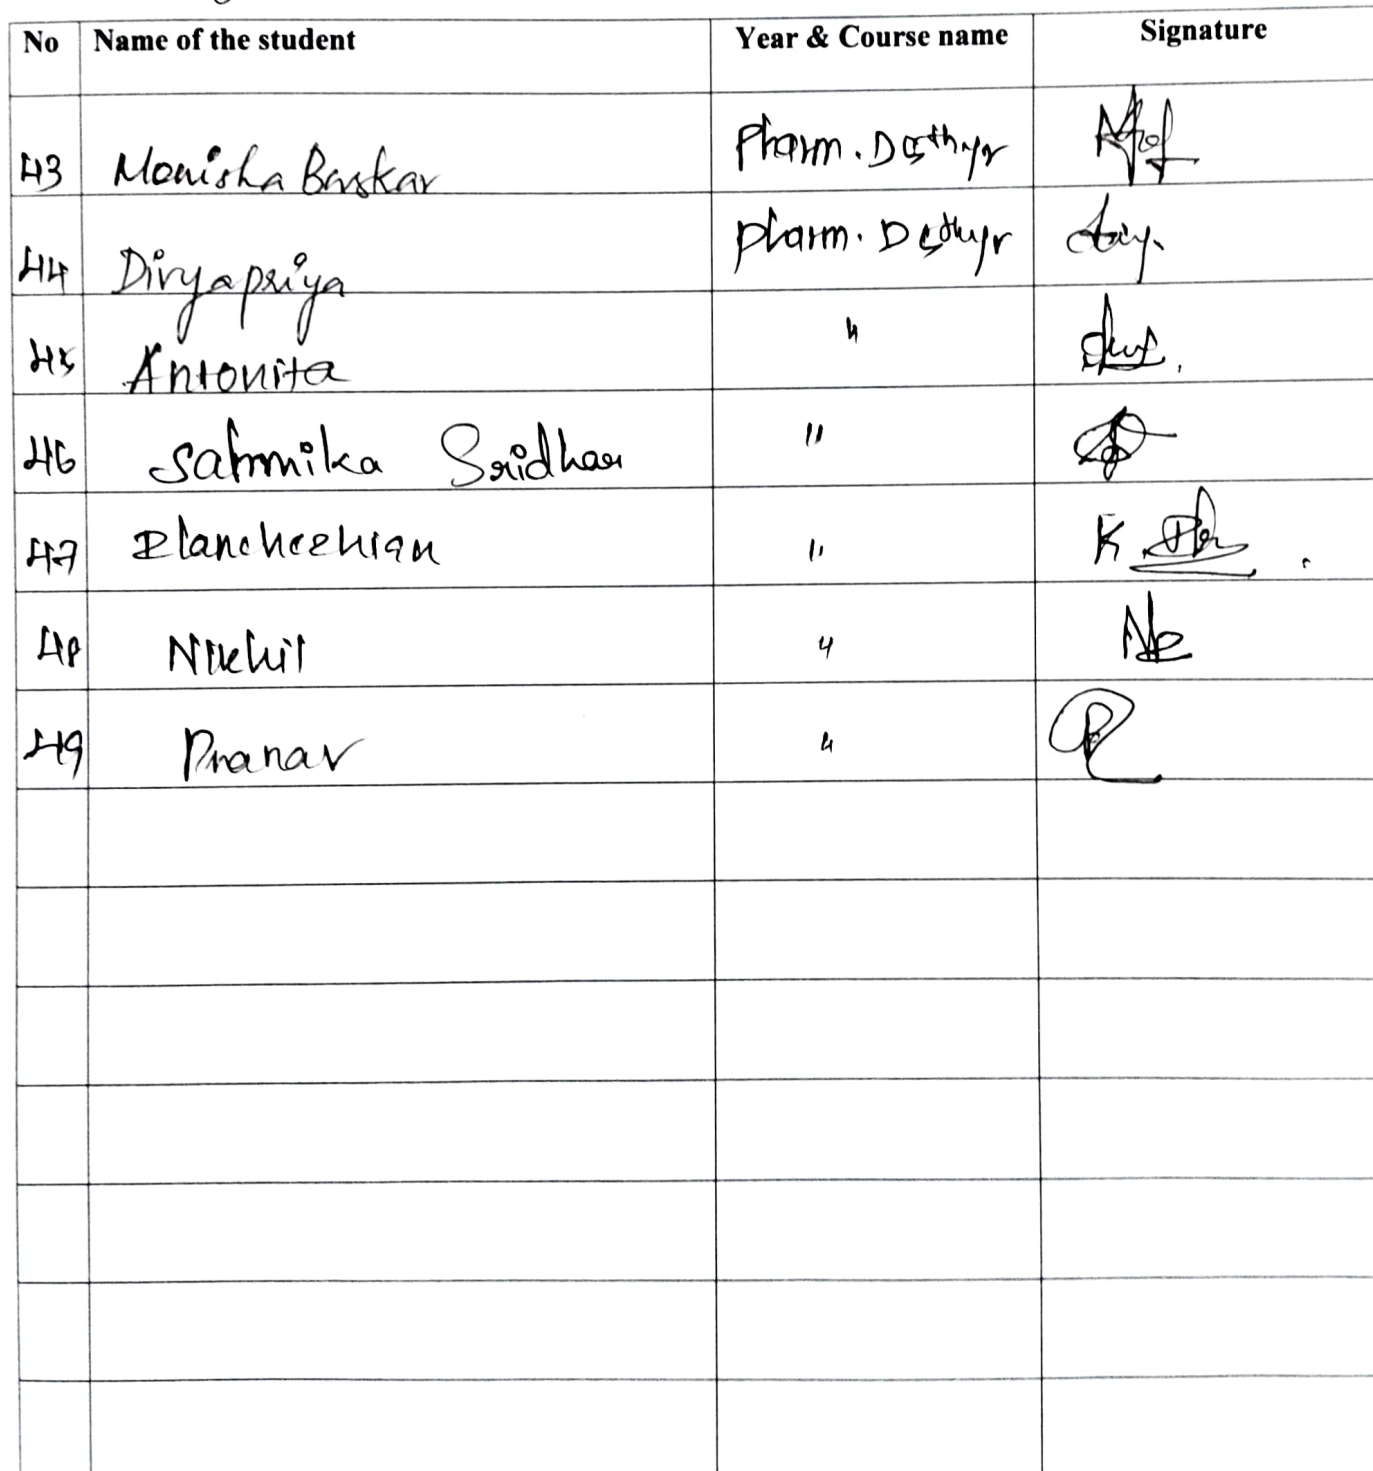 No Name of the student Year & Course name Signature
43 Monisha Baskar Pharm. D 5th yr
44 Divyapriya pharm. D 5th yr
45 Antonita "
46 Sridhar "
47 "
48 Nikhil "
49 Pranav "